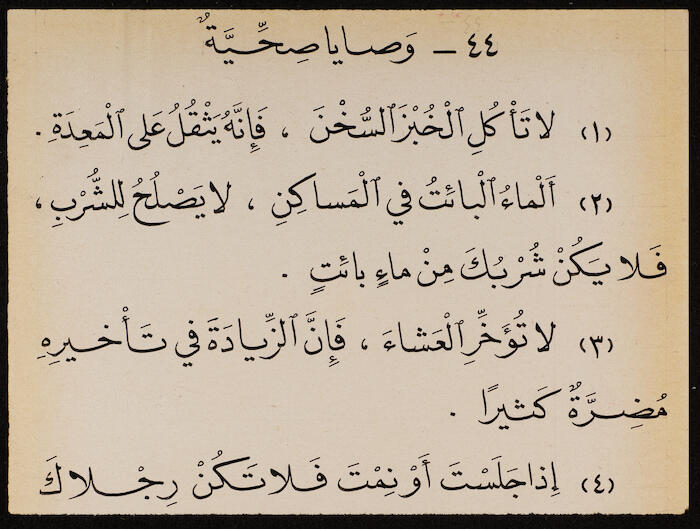 ٤٤ ـ وَصايا صِحِّيَّةٌ
(١) لا تَأْكُلِ ٱلْخُبْزَ ٱلسُّخْنَ ، فَإِنَّهُ يَثْقُلُ عَلى ٱلْمَعِدَةِ .
(٢) أَلْماءُ ٱلْبائَتُ في ٱلْمَساكِنِ ، لا يَصْلُحُ لِلشُّرْبِ ،
فَلا يَكُنْ شُرْبُكَ مِنْ ماءٍ بائَتٍ .
(٣) لا تُؤَخِّرِ ٱلْعَشاءَ ، فَإِنَّ ٱلزِّيادَةَ في تَأْخيرِهِ
مُضِرَّةٌ كَثيرًا .
(٤) إِذا جَلَسْتَ أَوْ نِمْتَ فَلا تَكُنْ رِجْلاكَ